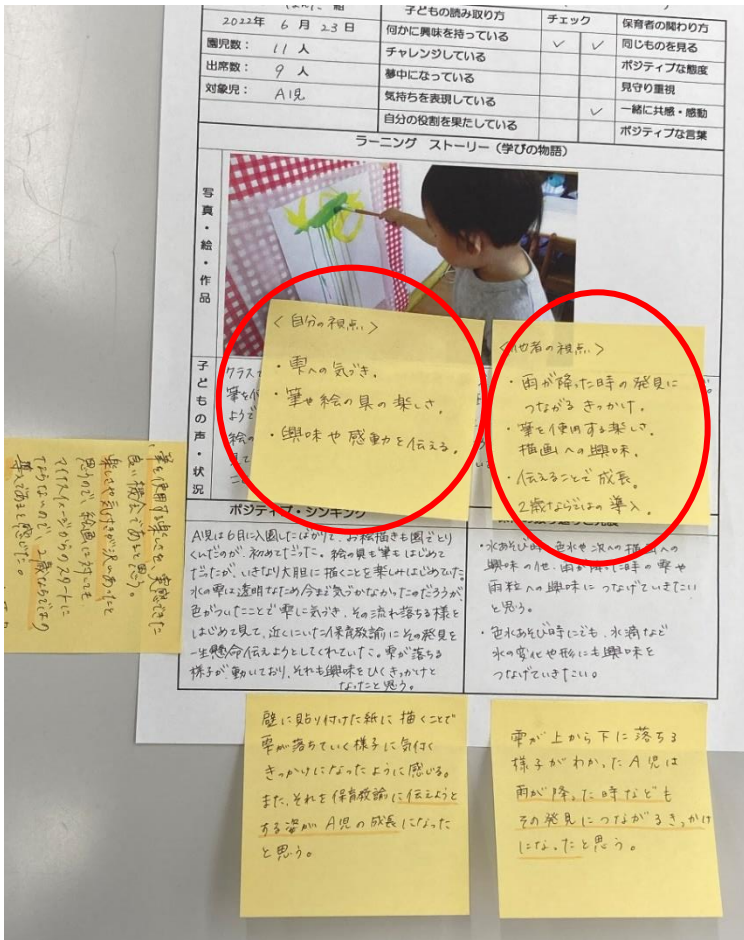 組
2022年 6月 23日
園児数： 11人
出席数： 9人
対象児： A児
子どもの読み取り方
チェック
保育者の関わり方
何かに興味を持っている
✓ ✓
同じものを見る
チャレンジしている
ポジティブな態度
夢中になっている
見守り重視
気持ちを表現している
✓
一緒に共感・感動
自分の役割を果たしている
ポジティブな言葉
ラーニング ストーリー（学びの物語）
写真・絵・作品
＜自分の視点＞
・雫への気づき。
・筆や絵の具の楽しさ。
・興味や感動を伝える。
＜他者の視点＞
・雨が降った時の発見に
つながるきっかけ。
・筆を使用する楽しさ。
描画への興味。
・伝えることで成長。
2歳ならではの導入。
子どもの声・状況
クラスで
筆を
ようで
絵の
見て
ポジティブ・シンキング
A児は6月に入園したばかりで、お絵描きも園でとり
くんだのが、初めてだった。絵の具も筆もはじめて
だったが、いきなり大胆に描くことを楽しみはじめていた。
水の雫は透明なため今まで気づかなかったのだろうが、
色がついたことで雫に気づき、その流れ落ちる様を
はじめて見て、近くにいた保育教諭にその発見を
一生懸命伝えようとしてくれていた。雫が落ちる
様子が、動いており、それも興味をひくきっかけと
なったと思う。
・水あそび時、色水や
描画への
興味の他、雨が降った時の雫や
雨粒への興味につなげていきたい
と思う。
・色水あそび時にでも、水滴など
水の変化や形にも興味を
つなげていきたい。
筆を使用する楽しさを実感できた
良い機会であると思う。
楽しさや気付きが沢山あったと
思うので、絵画に対しても
マイナスイメージからのスタートに
ならないので、2歳ならではの
導入であると感じた。
壁に貼り付けた紙に描くことで
雫が落ちていく様子に気付く
きっかけになったように感じる。
また、それを保育教諭に伝えようと
する姿がA児の成長になった
と思う。
雫が上から下に落ちる
様子がわかったA児は
雨が降った時なども
その発見につながるきっかけ
になったと思う。